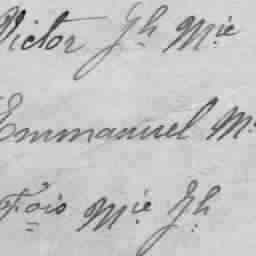 Victor Jh Mie
Emmanuel M
Fois Mie Jh